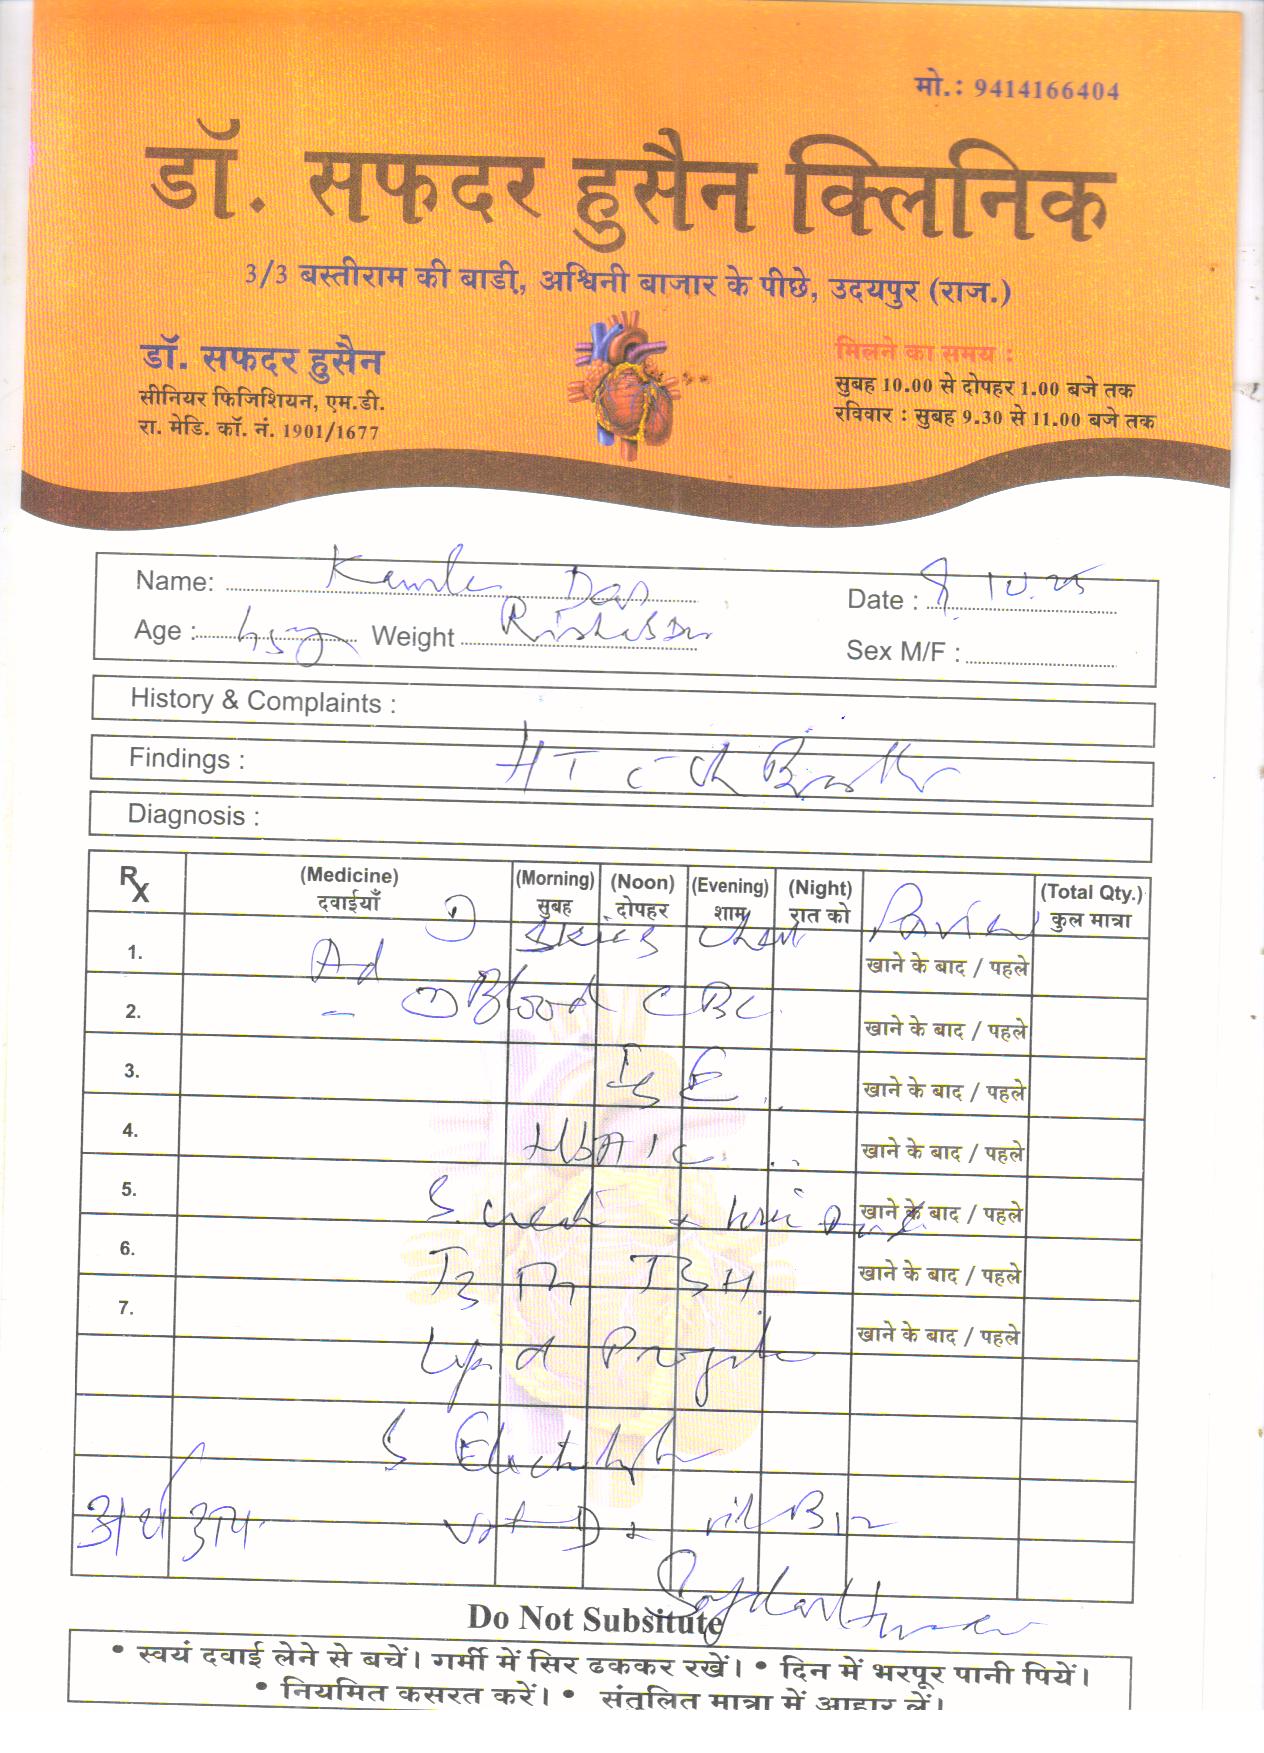 मो.: 9414166404
डॉ. सफदर हुसैन क्लिनिक
3/3 बस्तीराम की बाडी, अश्विनी बाजार के पीछे, उदयपुर (राज.)
डॉ. सफदर हुसैन
सीनियर फिजिशियन, एम.डी.
रा. मेडि. कॉ. नं. 1901/1677
मिलने का समय :
सुबह 10.00 से दोपहर 1.00 बजे तक
रविवार : सुबह 9.30 से 11.00 बजे तक
Name: Das
Date : 10.25
Age : Weight
Sex M/F :
History & Complaints :
Findings : HT c
Diagnosis :
Rx (Medicine) (Morning) (Noon) (Evening) (Night) (Total Qty.)
दवाईयाँ सुबह दोपहर शाम रात को कुल मात्रा
1. Ad खाने के बाद / पहले
2. Blood CBC खाने के बाद / पहले
3. खाने के बाद / पहले
4. HbA1C खाने के बाद / पहले
5. S. creat + खाने के बाद / पहले
6. T3 T4 TSH खाने के बाद / पहले
7. खाने के बाद / पहले
Lipid Profile
S Electrolyte
vit D + vit B12
Do Not Subsitute
• स्वयं दवाई लेने से बचें। गर्मी में सिर ढककर रखें। • दिन में भरपूर पानी पियें।
• नियमित कसरत करें। • संतुलित मात्रा में आहार लें।